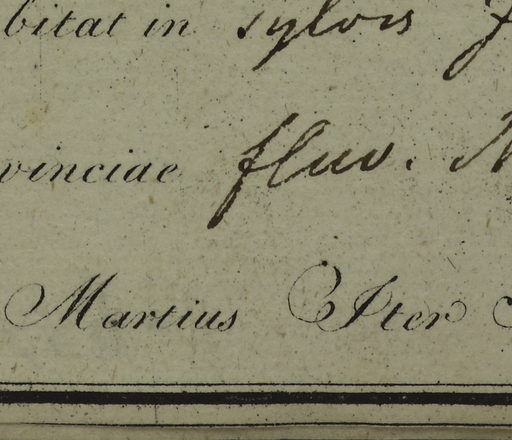 bitat in sylvis
vinciae fluv.
Martius Iter